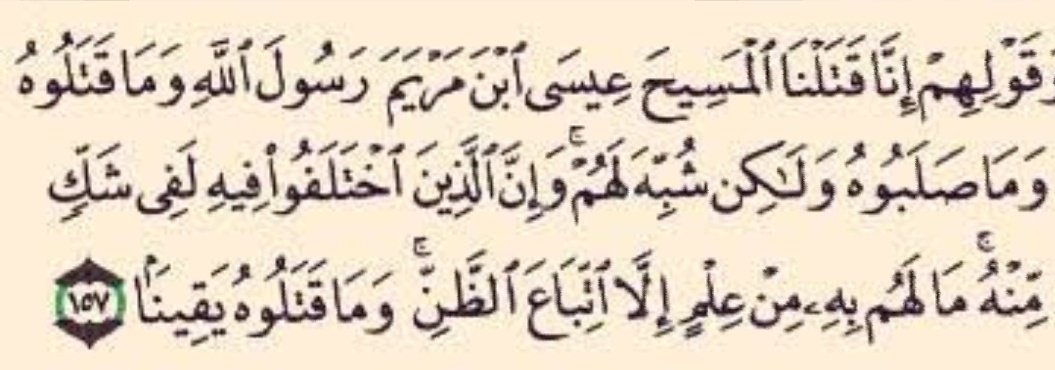 وَقَوْلِهِمْ إِنَّا قَتَلْنَا ٱلْمَسِيحَ عِيسَى ٱبْنَ مَرْيَمَ رَسُولَ ٱللَّهِ وَمَا قَتَلُوهُ
وَمَا صَلَبُوهُ وَلَـٰكِن شُبِّهَ لَهُمْ ۚ وَإِنَّ ٱلَّذِينَ ٱخْتَلَفُوا۟ فِيهِ لَفِى شَكٍّ
مِّنْهُ ۚ مَا لَهُم بِهِۦ مِنْ عِلْمٍ إِلَّا ٱتِّبَاعَ ٱلظَّنِّ ۚ وَمَا قَتَلُوهُ يَقِينًۢا ١٥٧